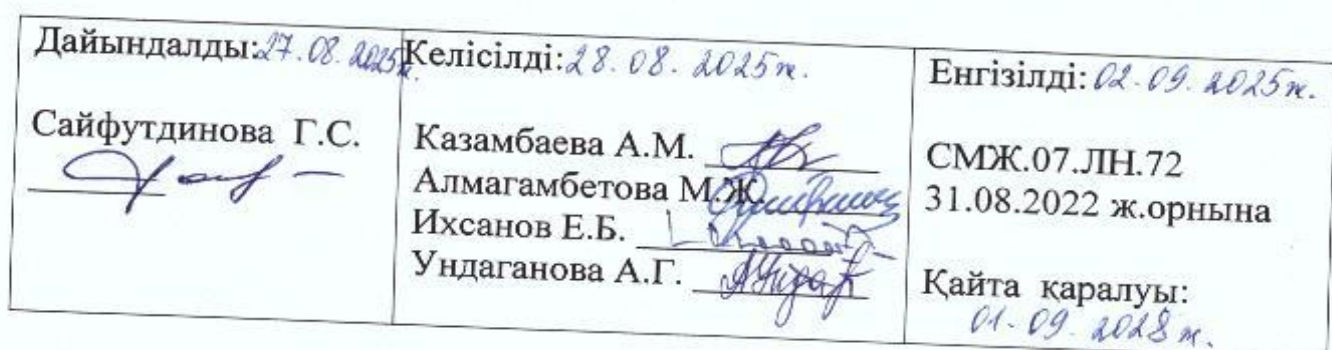 Дайындалды: 27.08.2025ж.
Сайфутдинова Г.С.
Келісілді: 28.08.2025ж.
Казамбаева А.М.
Алмагамбетова М.Ж.
Ихсанов Е.Б.
Ундаганова А.Г.
Енгізілді: 02.09.2025ж.
СМЖ.07.ЛН.72
31.08.2022 ж.орнына
Қайта қаралуы:
01.09.2028ж.